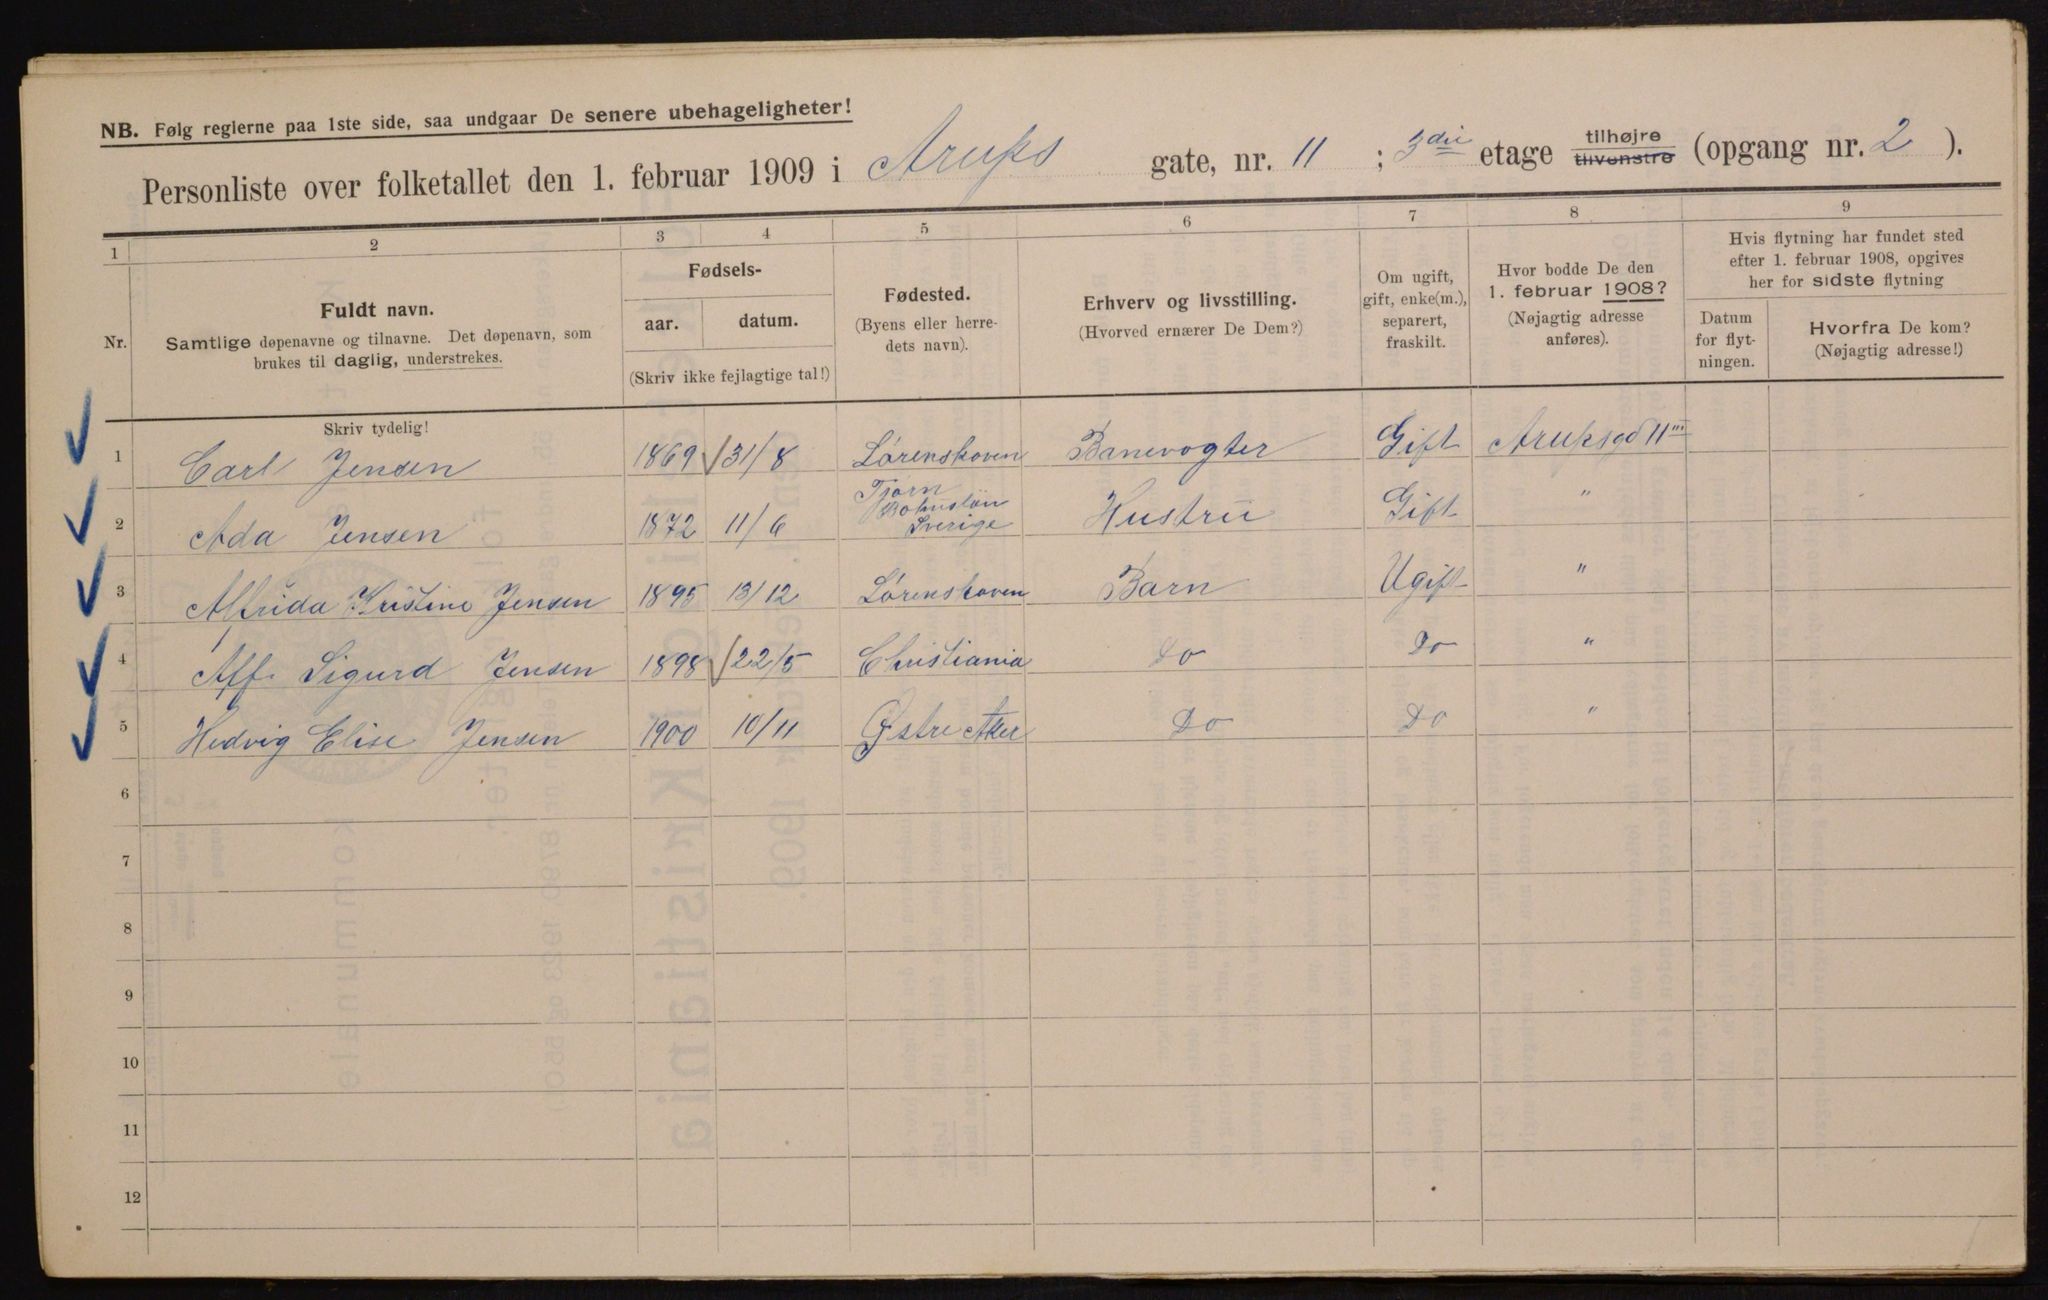 NB. Følg reglerne paa 1ste side, saa undgaar De senere ubehageligheter!
Personliste over folketallet den 1. februar 1909 i Arups gate, nr. 11 ; 3die etage tilhøjre tilvenstre (opgang nr. 2 ).
1 2 3 4 5 6 7 8 9
Nr.
Fuldt navn.
Samtlige døpenavne og tilnavne. Det døpenavn, som
brukes til daglig, understrekes.
Fødsels-
aar. datum.
(Skriv ikke fejlagtige tal!)
Fødested.
(Byens eller herre-
dets navn).
Erhverv og livsstilling.
(Hvorved ernærer De Dem?)
Om ugift,
gift, enke(m.),
separert,
fraskilt.
Hvor bodde De den
1. februar 1908?
(Nøjagtig adresse
anføres).
Hvis flytning har fundet sted
efter 1. februar 1908, opgives
her for sidste flytning
Datum
for flyt-
ningen.
Hvorfra De kom?
(Nøjagtig adresse!)
Skriv tydelig!
1 Carl Jensen 1869 31/8 Lørenskoven Banevogter Gift Arupsgd 11 III
2 Ada Jensen 1872 11/6 Tjörn Bohuslän Sverige Hustru Gift "
3 Alfrida Kristine Jensen 1895 13/12 Lørenskoven Barn Ugift "
4 Alf. Sigurd Jensen 1898 22/5 Christiania Do Do "
5 Hedvig Elise Jensen 1900 10/11 Østre Aker Do Do "
6
7
8
9
10
11
12